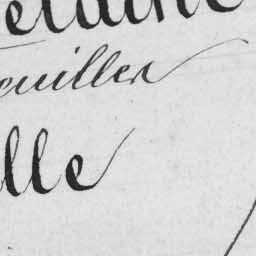 elaine
euiller
lle